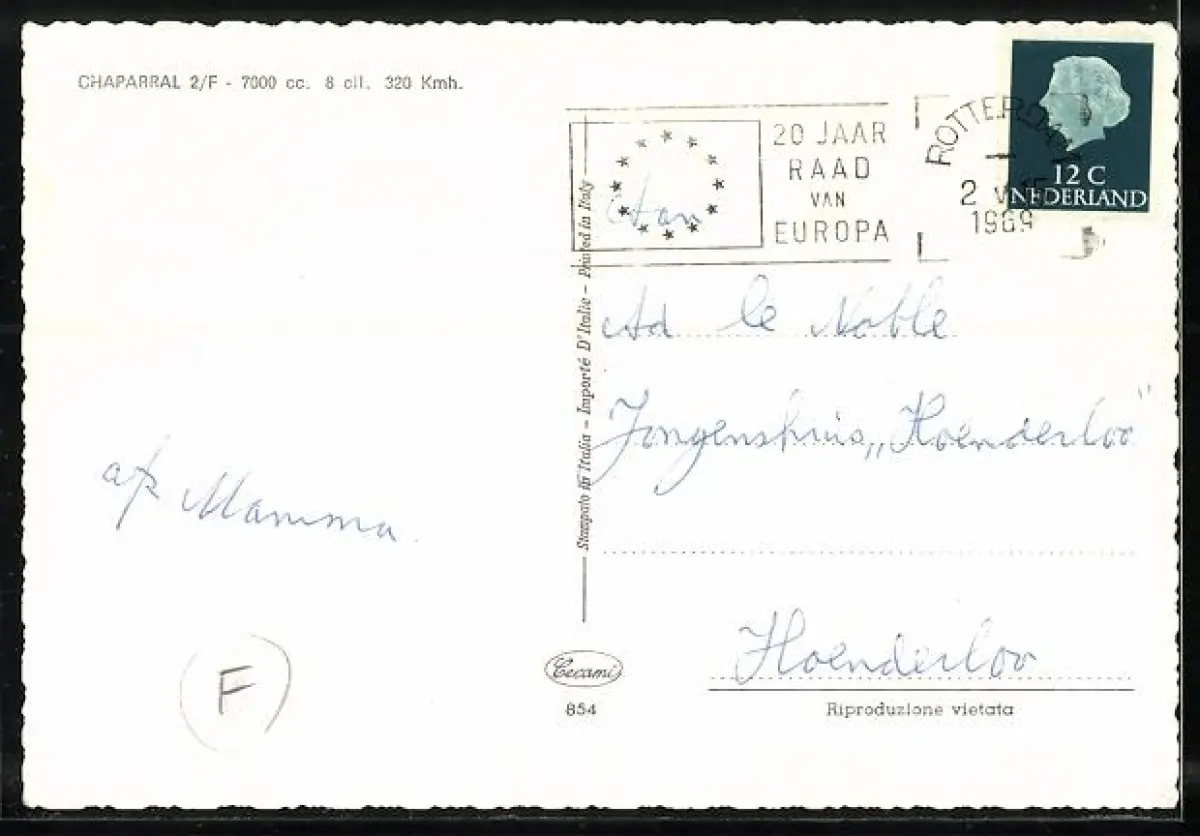 CHAPARRAL 2/F - 7000 cc. 8 cil. 320 Kmh.
12 C
NEDERLAND
20 JAAR
RAAD
VAN
EUROPA
ROTTERDAM
2
1969
Stampato in Italia - Importé D'Italie - Printed in Italy
Aan
Ad le Noble
Jongenshuis „Hoenderloo"
Hoenderloo
Mamma
F
Cecami
854
Riproduzione vietata